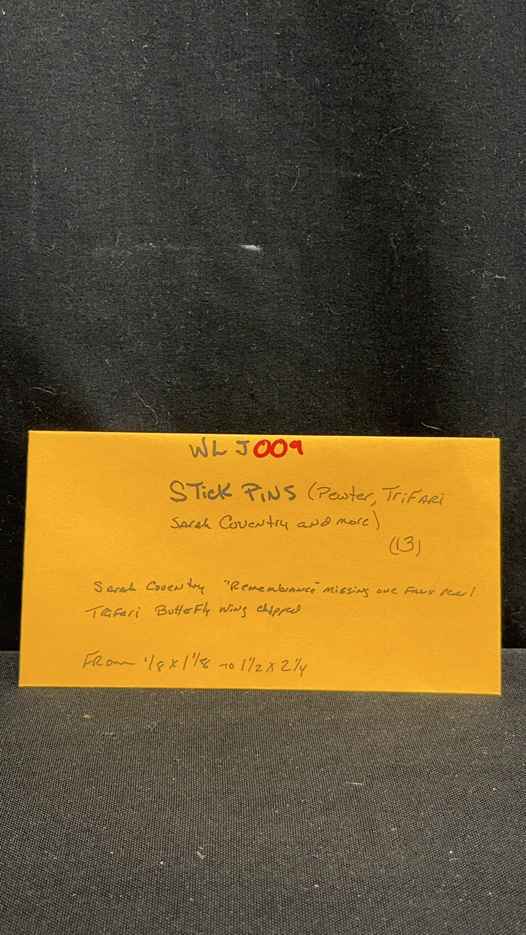 WL J009
STICK PINS (Pewter, TRIFARI
SARAH COVENTRY AND MORE)
(13)
SARAH COVENTRY "Remembrance" MISSING ONE FAUX PEARL
TRIFARI BUTTERFLY WING CHIPPED
FROM 1/8 X 1 1/8 TO 1 1/2 X 2 1/4